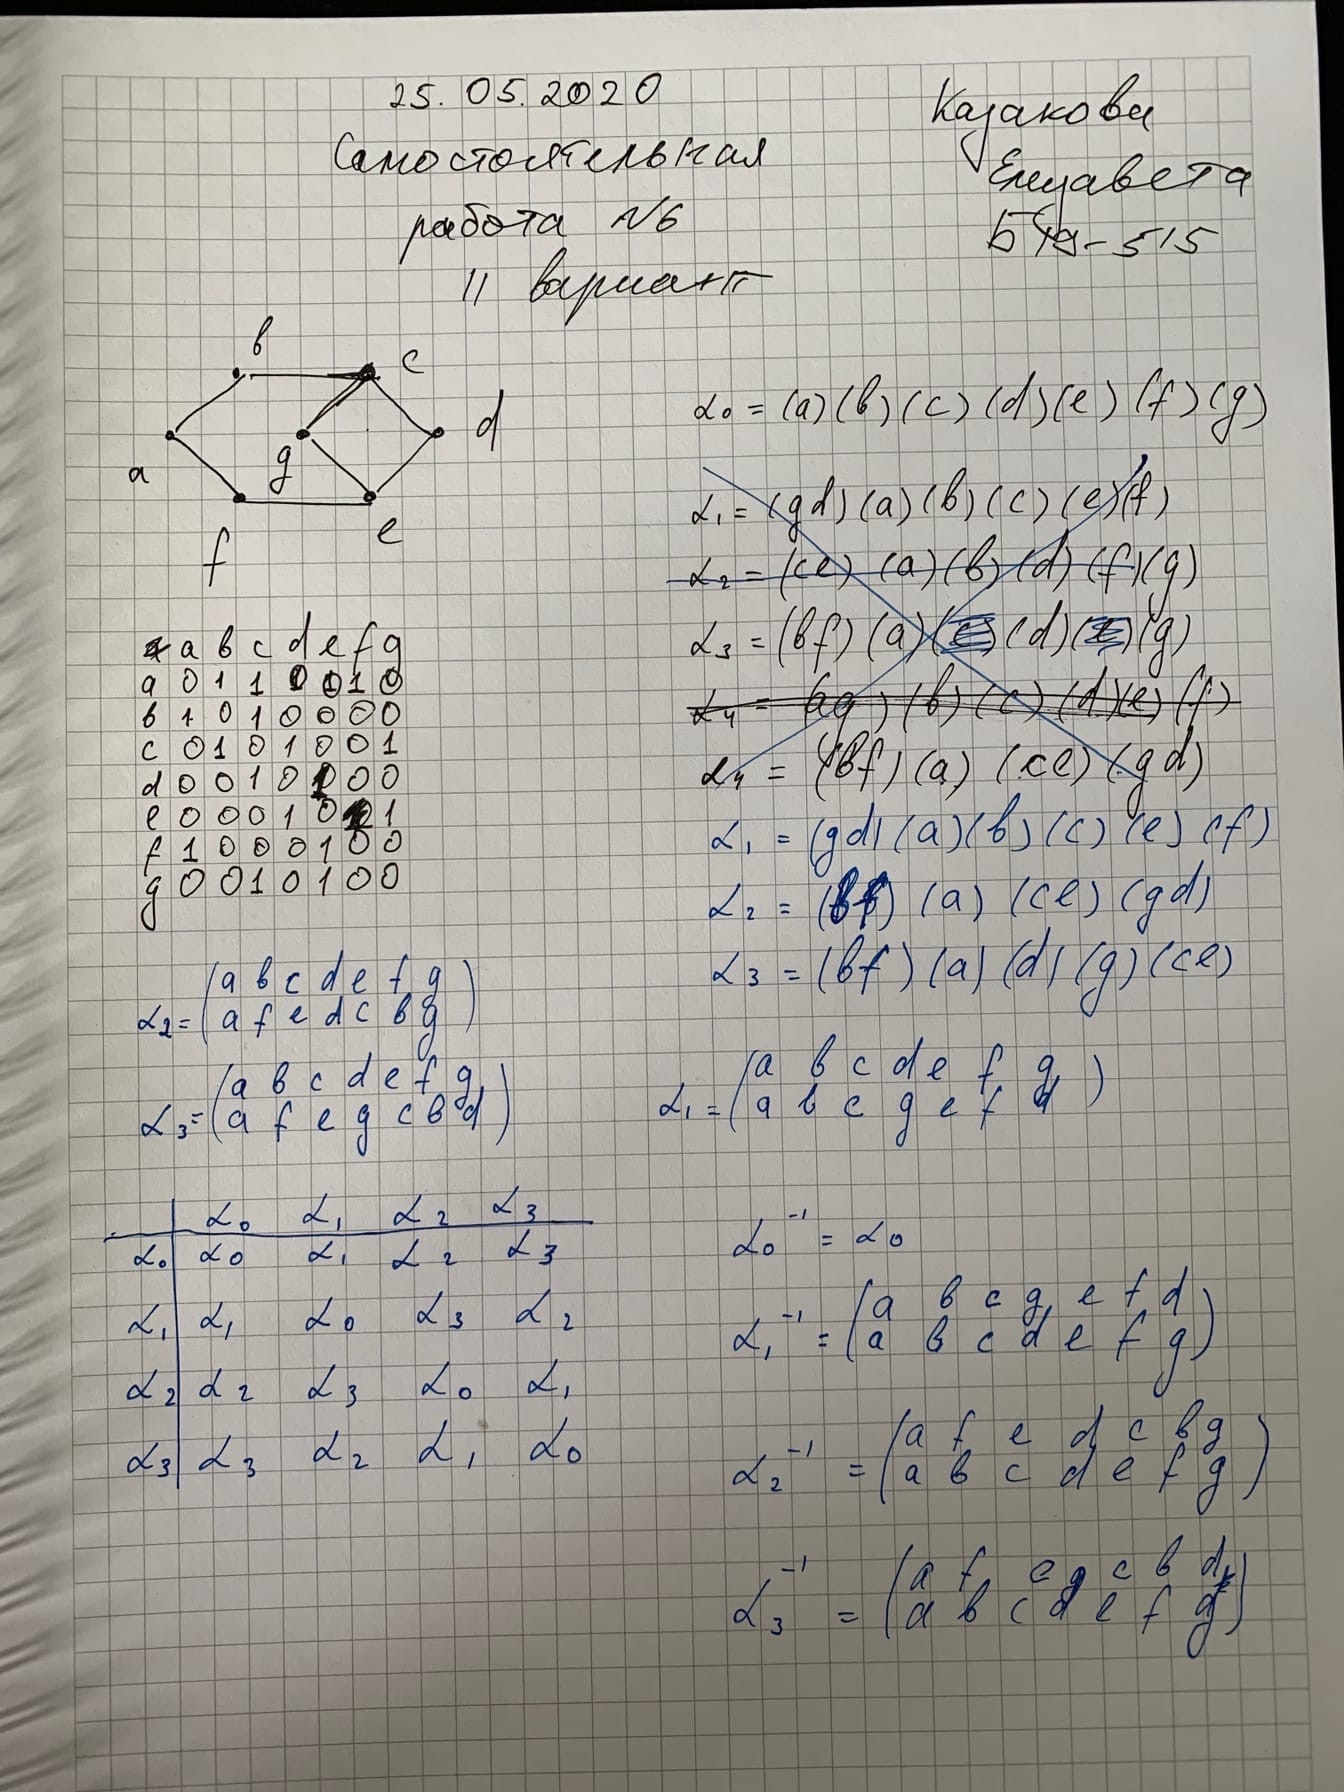 25.05.2020
Самостоятельная
работа №6
11 вариант
Казакова
Елизавета
Б19-515
b
c
d
g
a
e
f
α₀ = (a)(b)(c)(d)(e)(f)(g)
α₁ = (gd)(a)(b)(c)(e)(f)
α₂ = (ce)(a)(b)(d)(f)(g)
α₃ = (bf)(a)(c)(d)(e)(g)
α₄ = (ag)(b)(c)(d)(e)(f)
α₄ = (bf)(a)(ce)(gd)
α₁ = (gd)(a)(b)(c)(e)(f)
α₂ = (bf)(a)(ce)(gd)
α₃ = (bf)(a)(d)(g)(ce)
a b c d e f g
a 0 1 1 0 0 1 0
b 1 0 1 0 0 0 0
c 0 1 0 1 0 0 1
d 0 0 1 0 1 0 0
e 0 0 0 1 0 1 1
f 1 0 0 0 1 0 0
g 0 0 1 0 1 0 0
α₂ = (a b c d e f g
a f e d c b g)
α₃ = (a b c d e f g
a f e g c b d)
α₁ = (a b c d e f g
a b c g e f d)
α₀ α₁ α₂ α₃
α₀ α₀ α₁ α₂ α₃
α₁ α₁ α₀ α₃ α₂
α₂ α₂ α₃ α₀ α₁
α₃ α₃ α₂ α₁ α₀
α₀⁻¹ = α₀
α₁⁻¹ = (a b c g e f d
a b c d e f g)
α₂⁻¹ = (a f e d c b g
a b c d e f g)
α₃⁻¹ = (a f e g c b d
a b c d e f g)